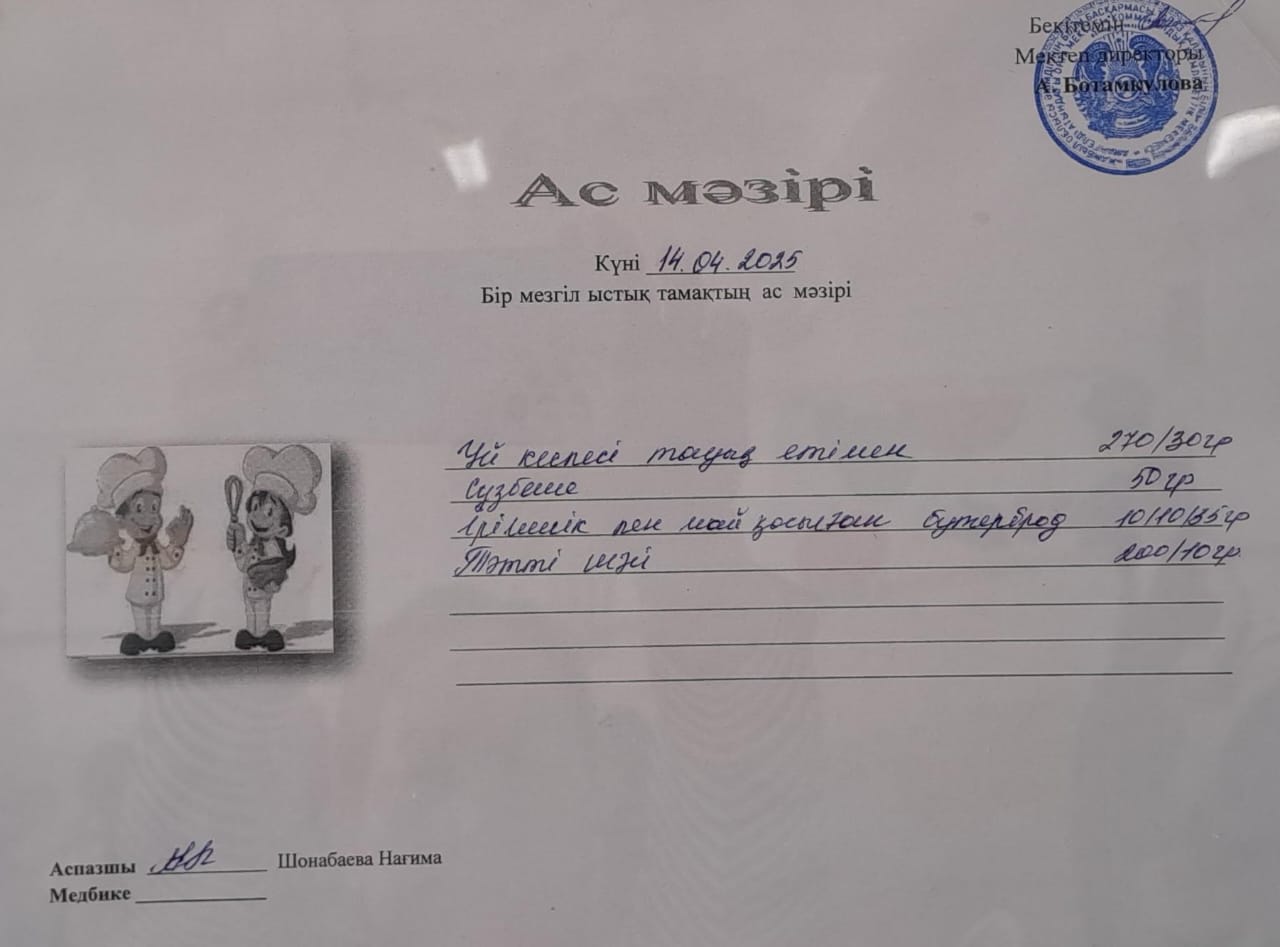 Бекітемін
Мектеп директоры
А. Ботамкулова
Ас мәзірі
Күні 14.04.2025
Бір мезгіл ыстық тамақтың ас мәзірі
Үй кеспесі тауық етімен 270/30гр
Сүзбеше 50гр
Ірімшік пен май қосылған бутерброд 10/10/35гр
Тәтті шәй 200/10гр
Аспазшы Шонабаева Нағима
Медбике